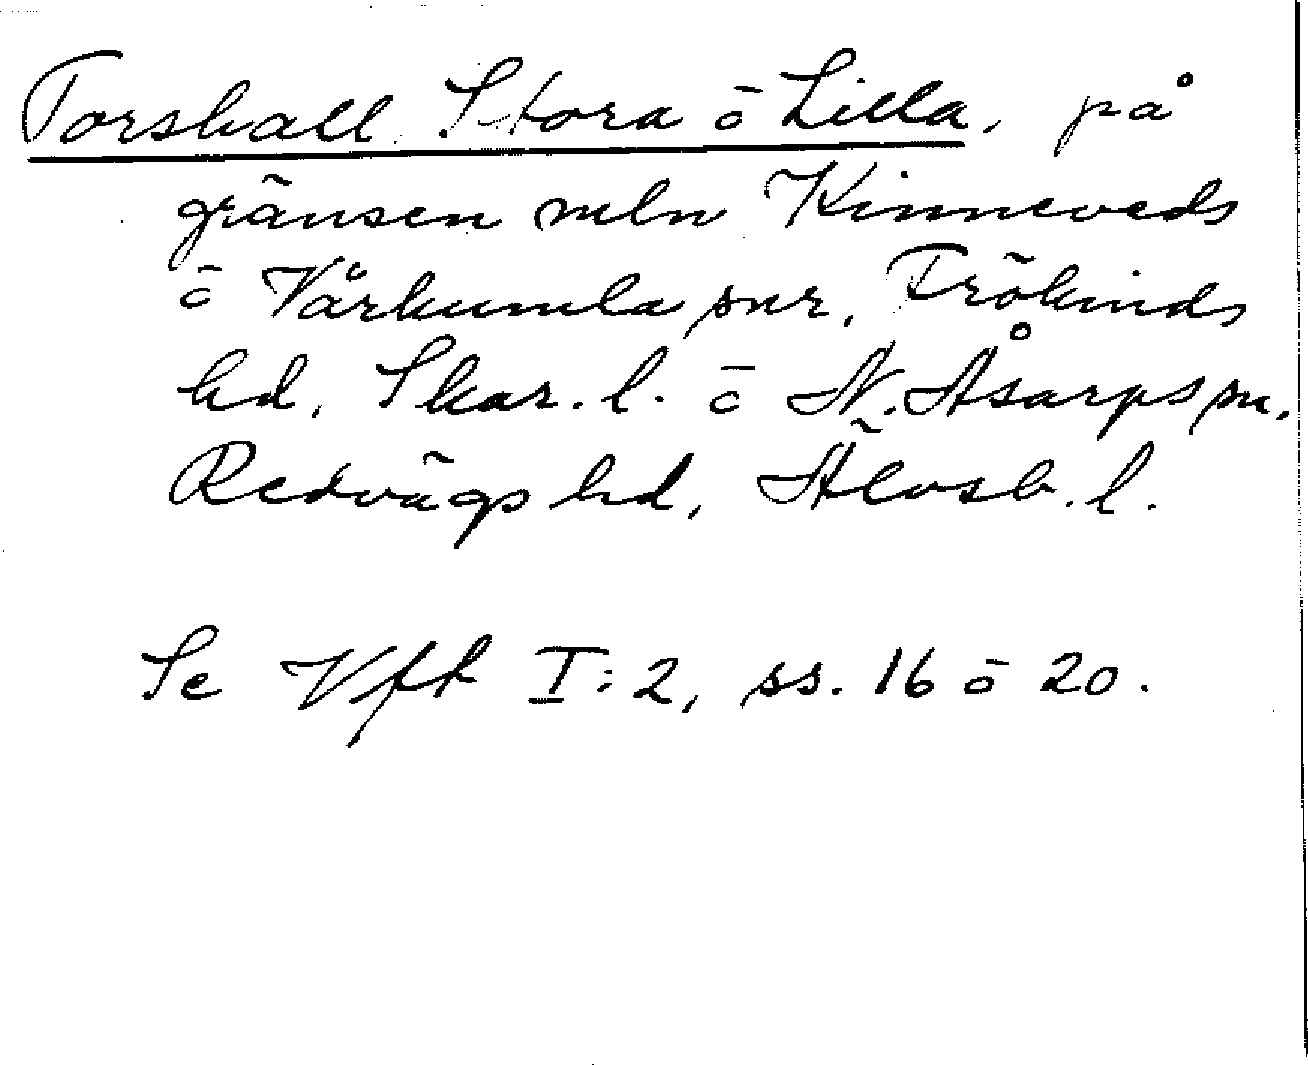 Torshall Stora ō Lilla, på
gränsen mln Kinneveds
ō Vårkumla snr, Frökinds
hd, Skar. l. ō N. Åsarps sn,
Redvägs hd, Älvsb. l.
Se Vfk I:2, ss. 16 ō 20.